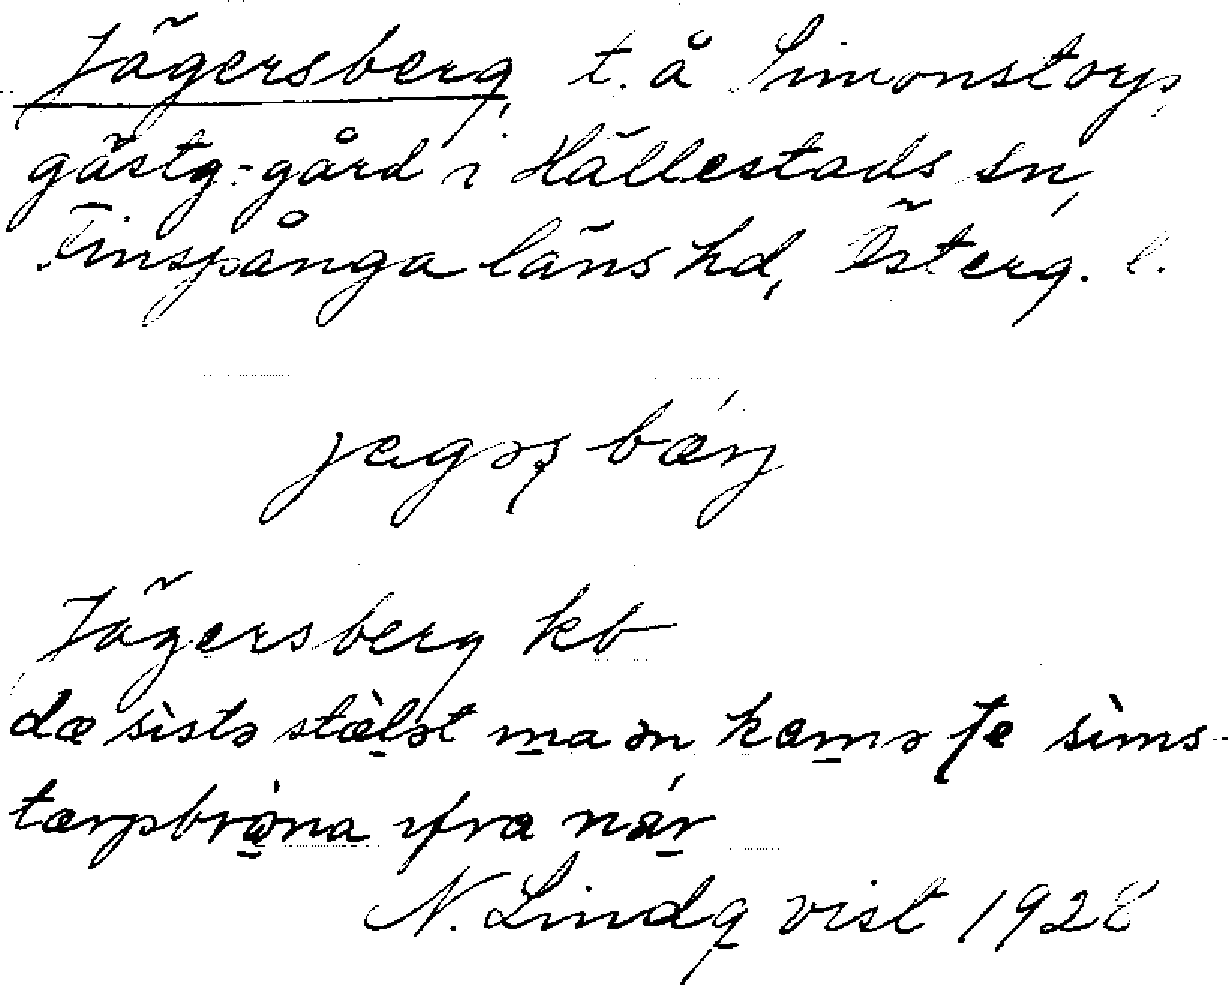 Jägersberg, t. å Simonstorps
gästg.-gård i Hällestads sn,
Finspånga läns hd, Österg. l.
jegəṣbárj
Jägersberg kb
dæ sìstə stælət ma ən kæmə te sims-
tærpbròna ifra nár
N. Lindqvist 1928